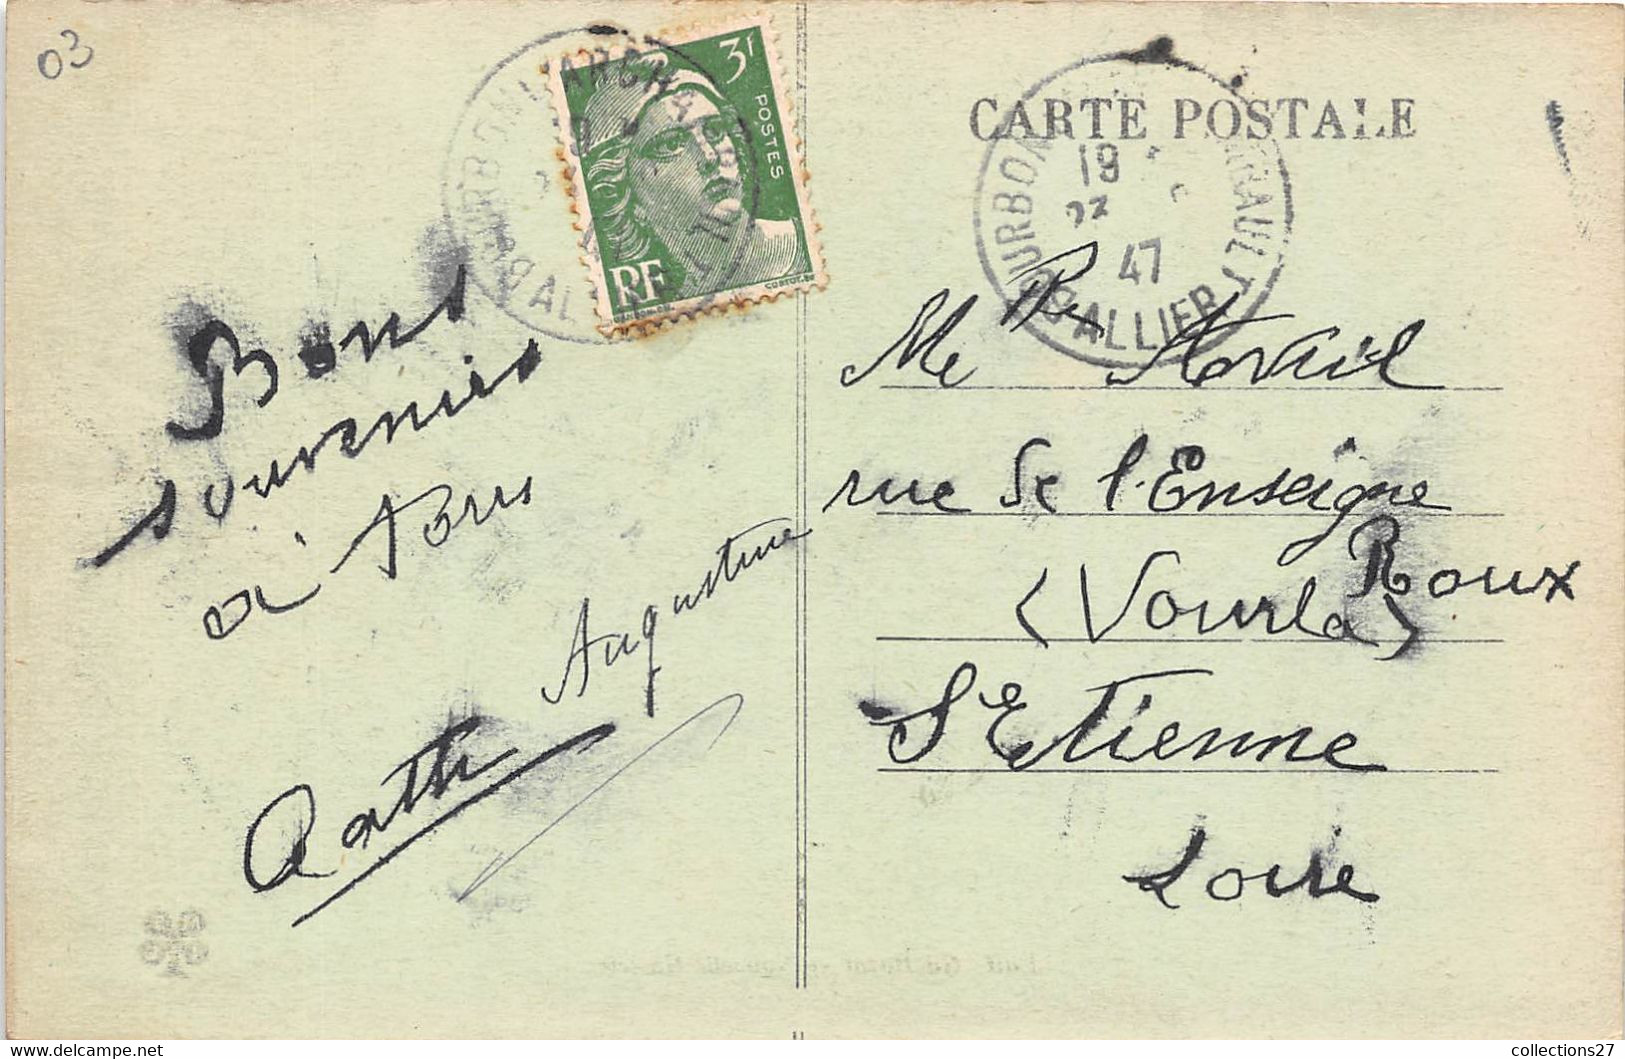 03
BOURBON L'ARCHAMBAULT
ALLIER
3f
POSTES
RF
CARTE POSTALE
19
47
ALLIER
Bons
souvenirs
à tous
Augustine
Me
rue de l'Enseigne
Roux
(Vourla)
St Etienne
Loire
collections27